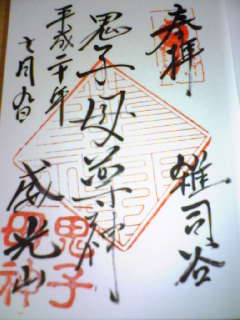 奉拝
雑司谷
鬼子母尊神
威光山
平成二十年
七月九日
鬼子
母神